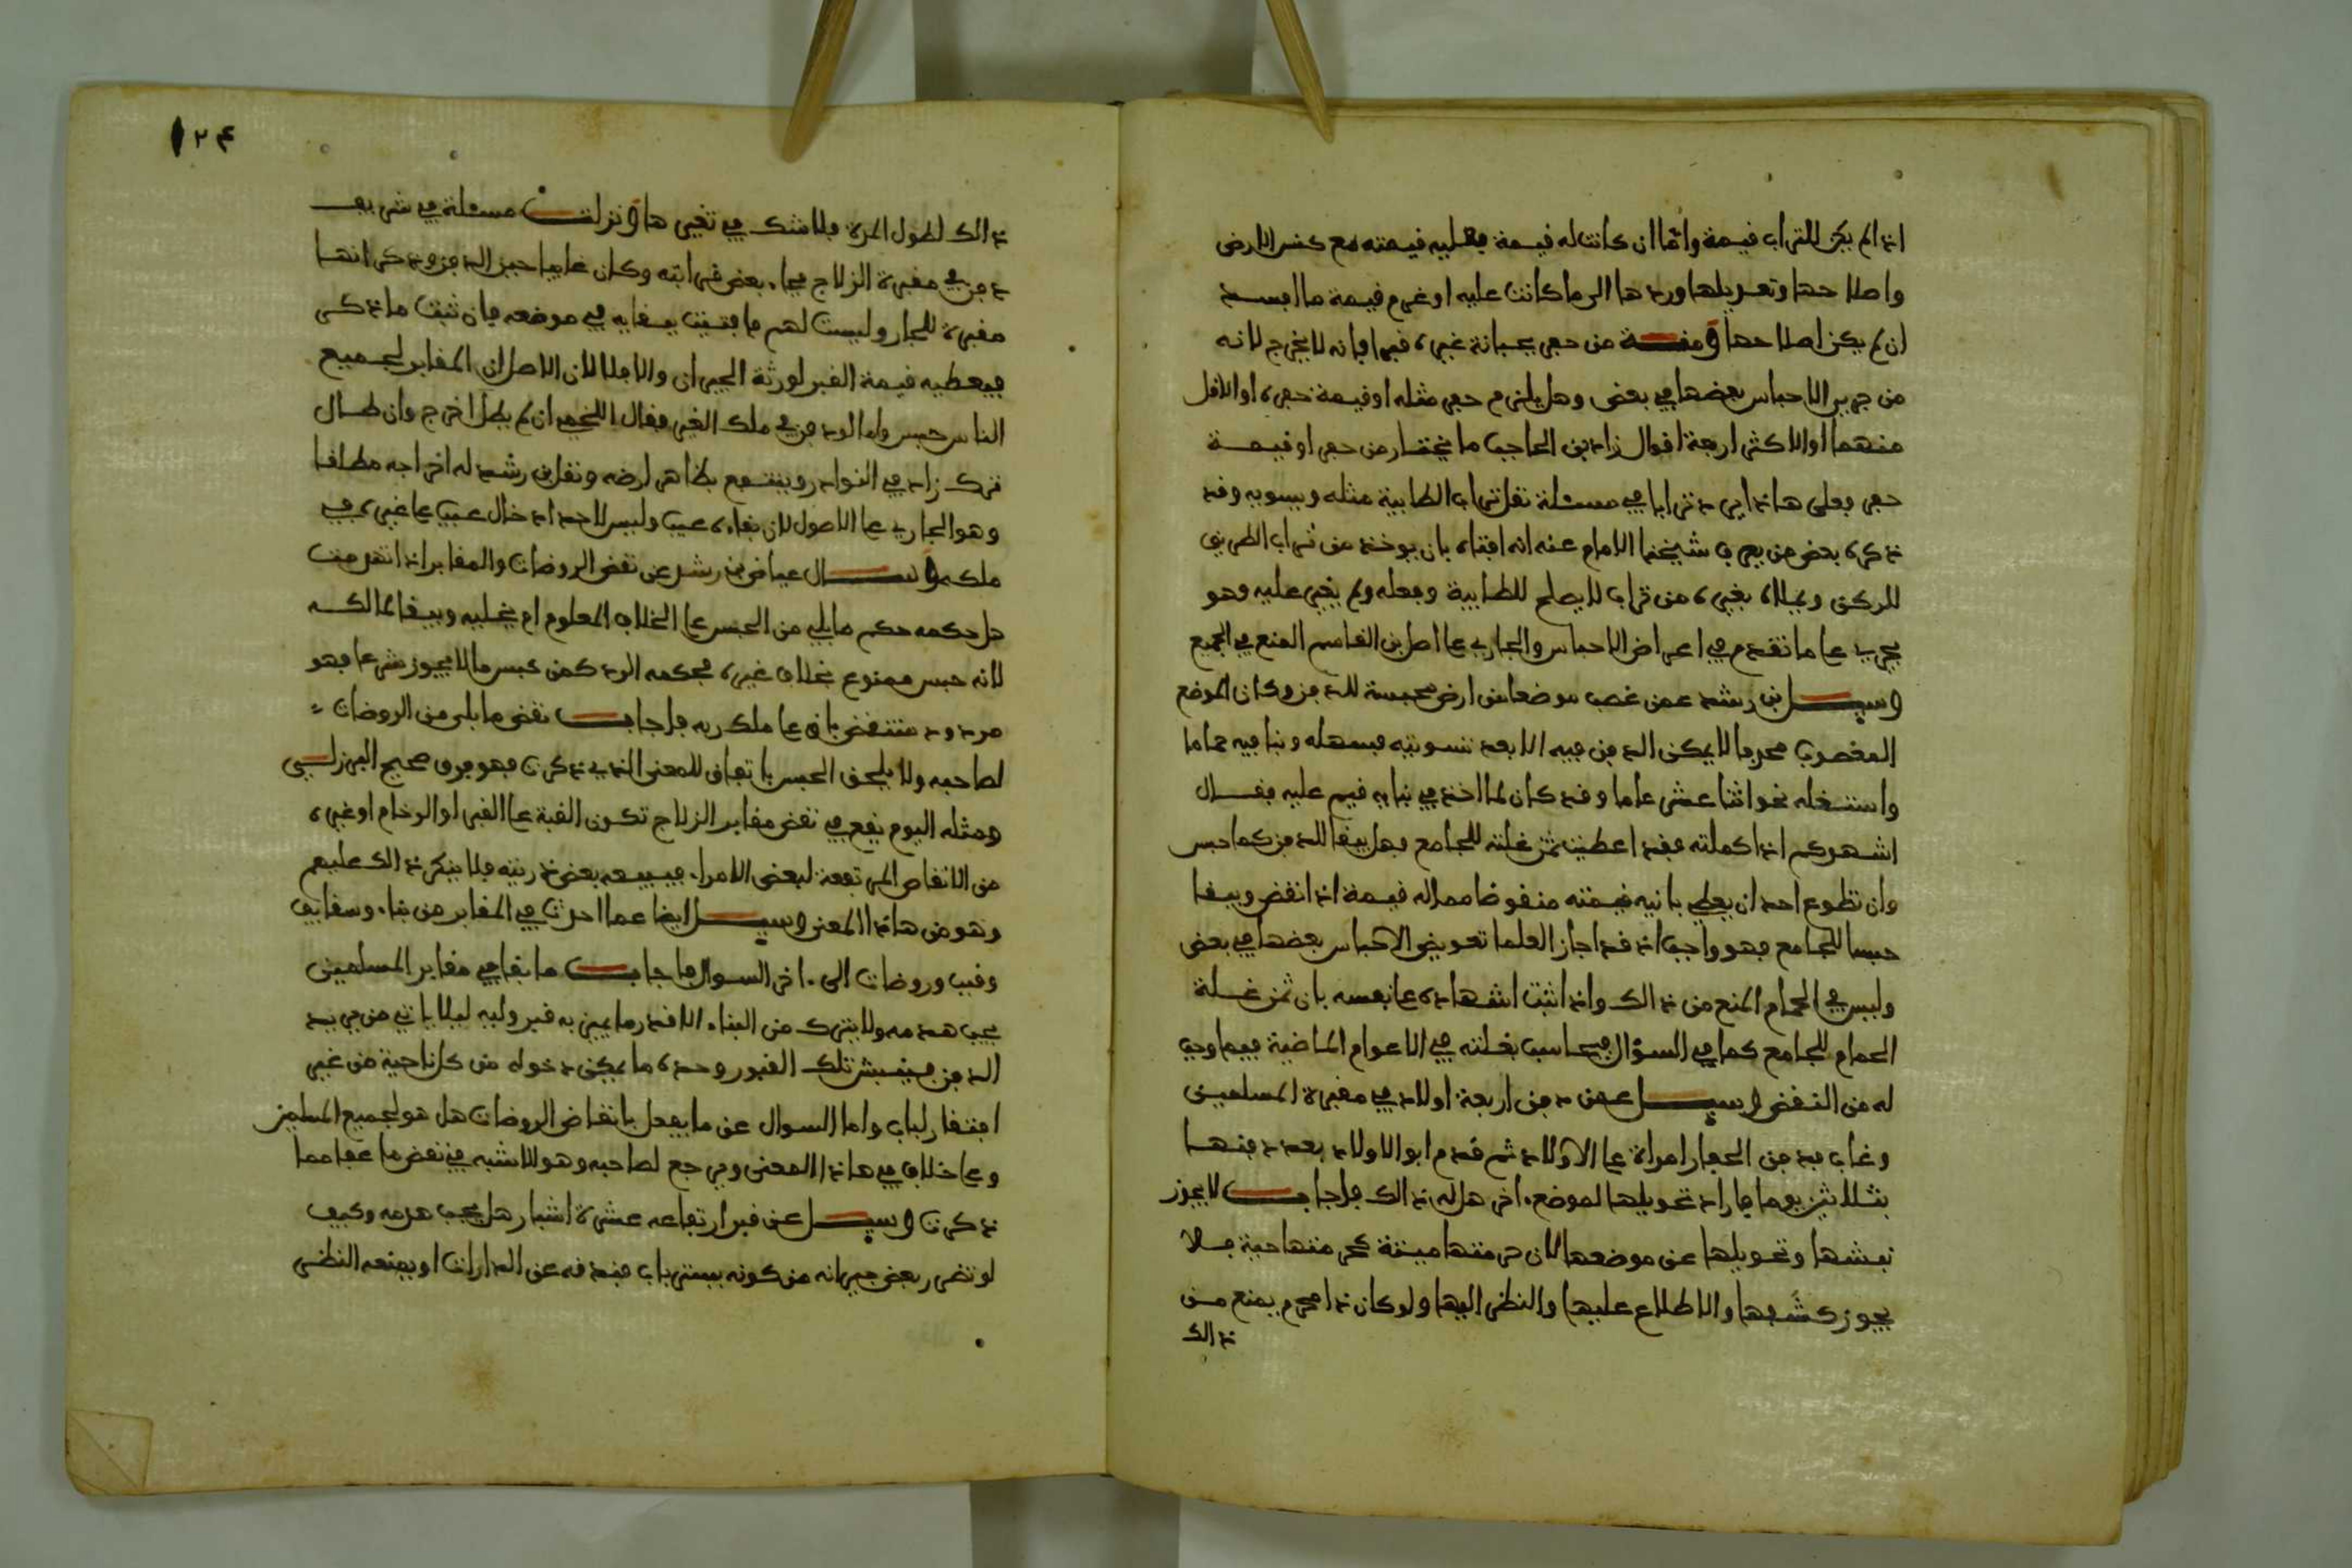 اذا لم يكن للتراب قيمة واما ان كانت له قيمة فعليه قيمته مع كنس الارض
واصلاحها وتعديلها وردها الى ما كانت عليه او غرم قيمة ما افسد
ان لم يكن اصلاحها ومنه من حفر بجبانة غيره قبرا فانه لا يخرج لانه
من جبر الاحباس بعضها في بعض وهل يلزم حفر مثله او قيمة حفره او الاقل
منهما او الاكثر اربعة اقوال زاد بن الحاجب ما يختار من حفر او قيمة
حفر فعلى هاذا يرد ترابا في مسئلة نقل تراب الطابية مثله ويسويه وقد
ذكره بعض من يعرف شيخنا الامام عنه انه افتاه بان يوخذ من تراب الطريق
للركن ويملاه بغيره من تراب لا يصلح للطابية وفعله ولم يغير عليه وهو
يجري على ما تقدم في اعراض الاحباس والجاري على اصل بن القاسم المنع في الجميع
وسيل بن رشد عمن غصب موضعا من ارض محبسة للدفن وكان الموضع
المغصوب لا يمكن الدفن فيه الا بعد تسويته فسهله وبنا فيه حماما
واستغله نحو اثنا عشر عاما وقد كان لما اخذ في بنايه قيم عليه فقال
اشهدكم اذا كملته فقد اعطيت ثمن غلته للجامع فهل يبقا للدفن كما حبس
وان تطوع احد ان يعطي بانيه قيمته منقوضا مما له قيمة اذا نقض ويبقا
حبسا للجامع فهو واجب اذ قد اجاز العلما تعويض الاحباس بعضها في بعض
وليس في الحمام المنع من ذالك واذا ثبت اشهاده على نفسه بان ثمن غلة
الحمام للجامع كما في السؤال فيحاسب بغلته في الاعوام الماضية فيما وجب
له من النقض وسيل عمن دفن اربعة اولاد في مقبرة المسلمين
وغاب فدفن الحفار امراة على الاولاد ثم قدم ابو الاولاد بعد دفنها
بثلاثين يوما فاراد تحويلها لموضع اخر هل له ذالك فاجاب لا يجوز
نبشها وتحويلها عن موضعها لان حرمتها ميتة كحرمتها حية فلا
يجوز كشفها والاطلاع عليها والنظر اليها ولو كان ذا محرم يمنع من
ذالك
١٢٤
ذالك لطول المدة فلا شك في تغيرها ونزلت مسئلة في شريف
دفن في مقبرة الزلاج فجاء بعض قرابته وكان غايبا حين الدفن وذكر انها
مقبرة للجار وليست لهم فافتيت ببقايه في موضعه فان ثبت ما ذكر
فيعطيه قيمة القبر لورثة الجيران والا فلا لان الاصل ان المقابر لجميع
الناس حبس واما لو دفن في ملك الغير فقال اللخمي ان لم يطل اخرج وان طال
ترك زاد في النوادر وينتفع بظاهر ارضه ونقل بن رشد له اخراجه مطلقا
وهو الجاري على الاصول لان بقاءه عيب وليس لاحد ادخال عيب على غيره في
ملكه وسال عياض بن رشد عن نقض الروضات والمقابر اذا تهدمت
هل حكمه حكم ما بلي من الحبس على الخلاف المعلوم ام يخليه ويبقا لمالكه
لانه حبس ممنوع بخلاف غيره فحكمه الرد كمن حبس ما لا يجوز شرعا فهو
مردود منتقض باق على ملك ربه فاجاب نقض ما بلي من الروضات
لصاحبه ولا يلحق الحبس باتفاق للمعنى الذي ذكرت فهو فرق صحيح البرزلي
ومثله اليوم يقع في نقض مقابر الزلاج تكون القبة على القبر او الرخام او غيره
من الانقاض المرتفعة لبعض الامراء فيبيعه بعض ذريته فلا ينكر ذالك عليهم
وهو من هاذا المعنى وسيل ايضا عما احدث في المقابر من بناء وسقايف
وقبب وروضات الى اخر السوال فاجاب ما بنا في مقابر المسلمين
يجب هدمه ولا يترك من البناء الا قدر ما يميز به قبر وليه ليلا ياتي من يريد
الدفن فينبش تلك القبور وحده ما يمكن دخوله من كل ناحية من غير
افتقار لباب واما السوال عن ما يفعل بانقاض الروضات هل هو لجميع المسلمين
وعلى خلاف في هاذا المعنى ويرجع لصاحبه وهو الاشبه في نقض ما عفا مما
ذكرت وسيل عن قبر ارتفاعه عشرة اشبار هل يجب هدمه وكيف
لو تضرر بعض جيرانه من كونه يستر باب فندقه عن الدارات او يمنعه النظر